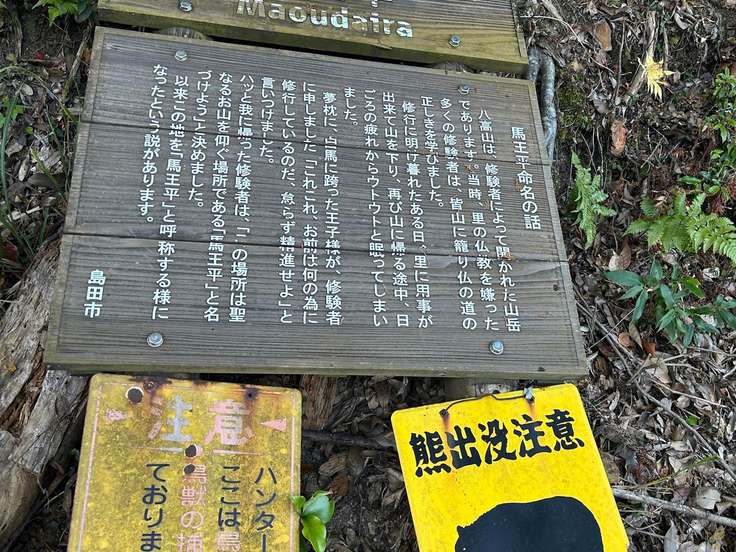 Maoudaira
馬王平命名の話
八高山は、修験者によって開かれた山岳
であります。当時、里の仏教を嫌った
多くの修験者は、皆山に籠り仏の道の
正しきを学びました。
修行に明け暮れたある日、里に用事が
出来て山を下り、再び山に帰る途中、日
ごろの疲れからウトウトと眠ってしまい
ました。
夢枕に白馬に跨った王子様が、修験者
に申しました「これこれ、お前は何の為に
修行しているのだ、怠らず精進せよ」と
言いつけました。
ハッと我に帰った修験者は、「この場所は聖
なるお山を仰ぐ場所である「馬王平」と名
づけよう」と決めました。
以来この地を「馬王平」と呼称する様に
なったという説があります。
島田市
注意
ハンター
ここは鳥
鳥獣の捕
ておりま
熊出没注意